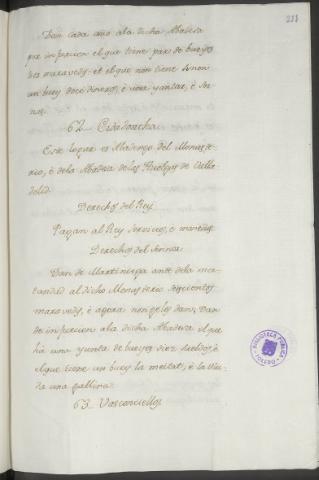 211
Dan cada año ala dicha Abadesa
por infurcion el que tiene par de bueyes
tres maravedis et el que non tiene sinon
un buey doce dineros, è una yantar, è Ser-
nas.
62 Cidadoncha
Este logar es Abadengo del Monas-
terio, è dela Abadesa de los Huelgas de Valla-
dolid.
Derechos del Rey
Pagan al Rey servicios, è monedas
Derechos del Señor
Dan de Martiniega ante dela mor-
tandad al dicho Monasterio seiscientos
maravedis, è agora non gelos dan, Dan
de infurcion ala dicha Abadesa el que
hà una yunta de bueyes diez sueldos, è
el que tiene un buey la meitat, è la viu-
da una gallina.
63 Vasconciellos
BIBLIOTECA PUBLICA
TOLEDO